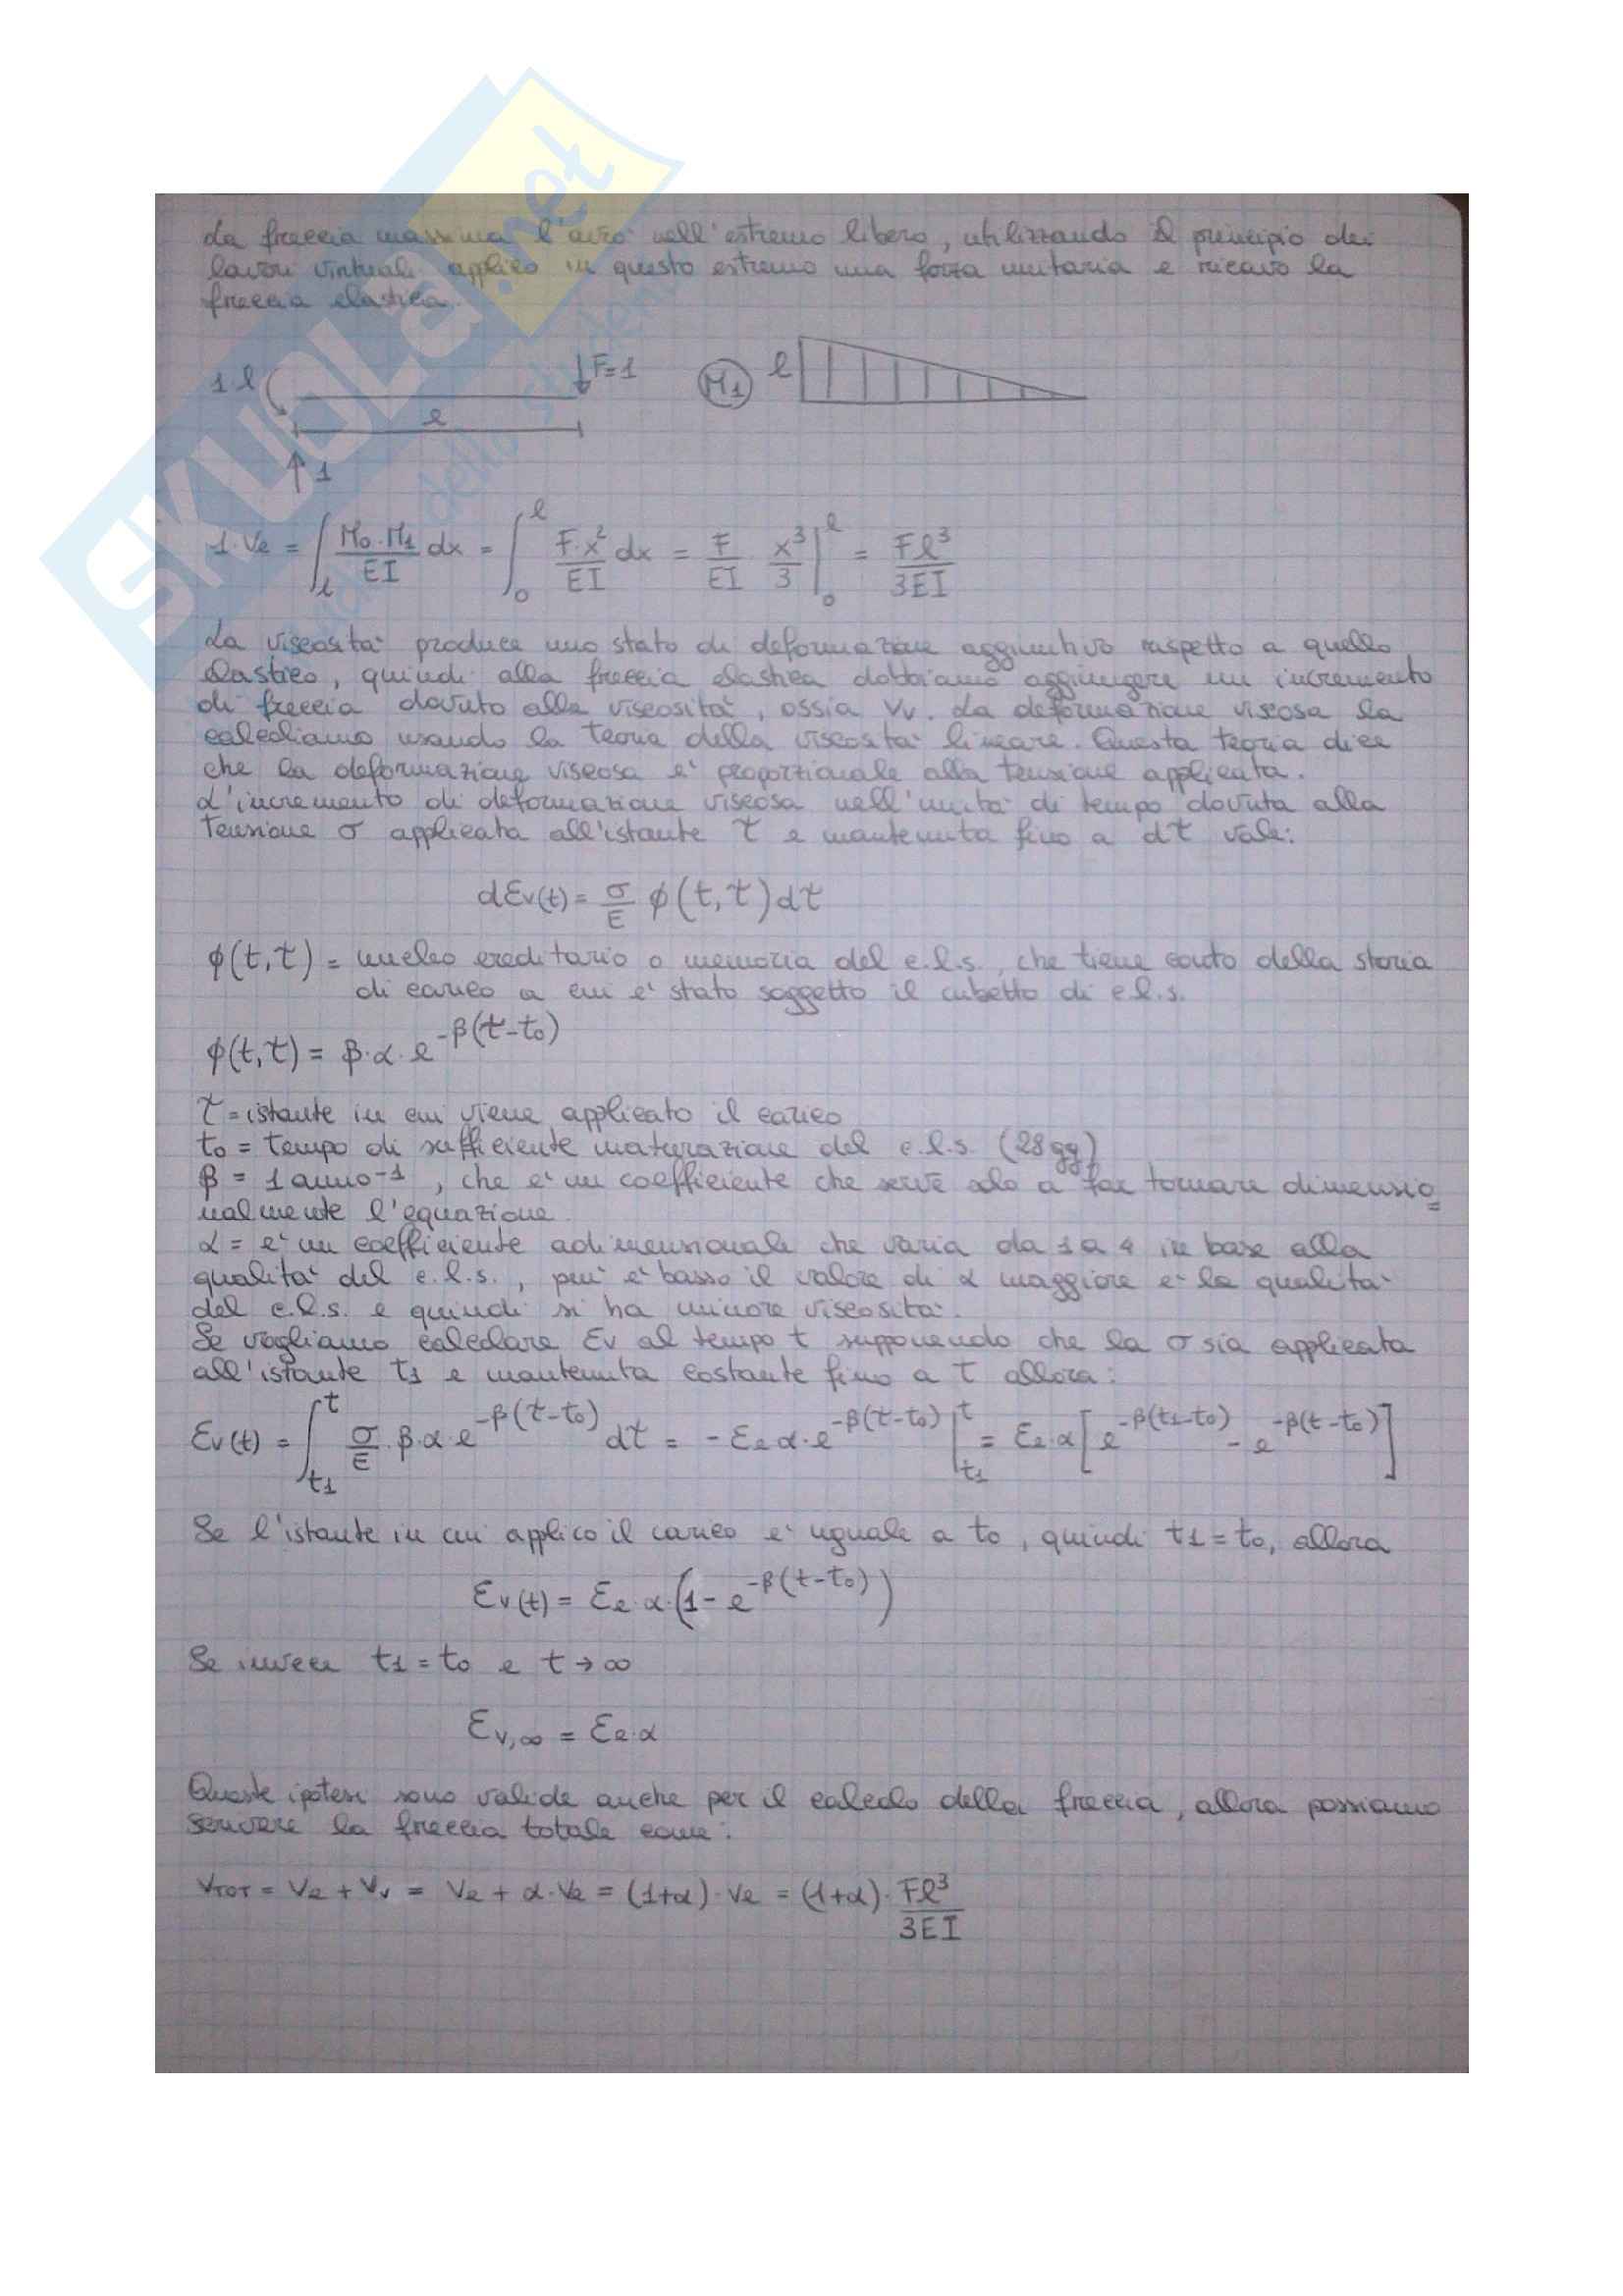 SKUOLA.net
La freccia massima l'avrò nell'estremo libero, utilizzando il principio dei
lavori virtuali applico in questo estremo una forza unitaria e ricavo la
freccia elastica.
1·l F=1 M1 l
l
1
1·Ve = ∫l M0·M1/EI dx = ∫0^l F·x²/EI dx = F/EI x³/3 |0^l = Fl³/3EI
La viscosità produce uno stato di deformazione aggiuntivo rispetto a quello
elastico, quindi alla freccia elastica dobbiamo aggiungere un incremento
di freccia dovuto alla viscosità, ossia Vv. La deformazione viscosa la
calcoliamo usando la teoria della viscosità lineare. Questa teoria dice
che la deformazione viscosa è proporzionale alla tensione applicata.
L'incremento di deformazione viscosa nell'unità di tempo dovuta alla
tensione σ applicata all'istante τ e mantenuta fino a dτ vale:
dεv(t) = σ/E ϕ(t,τ)dτ
ϕ(t,τ) = nucleo ereditario o memoria del c.l.s., che tiene conto della storia
di carico a cui è stato soggetto il cubetto di c.l.s.
ϕ(t,τ) = β·α·e^-β(τ-t0)
τ = istante in cui viene applicato il carico
t0 = tempo di sufficiente maturazione del c.l.s. (28gg)
β = 1 anno^-1, che è un coefficiente che serve solo a far tornare dimensio
nalmente l'equazione.
α = è un coefficiente adimensionale che varia da 1 a 4 in base alla
qualità del c.l.s., più è basso il valore di α maggiore è la qualità
del c.l.s. e quindi si ha minore viscosità.
Se vogliamo calcolare εv al tempo t supponendo che la σ sia applicata
all'istante t1 e mantenuta costante fino a t allora:
εv(t) = ∫t1^t σ/E·β·α·e^-β(τ-t0) dτ = -εe·α·e^-β(τ-t0) |t1^t = εe·α[e^-β(t1-t0) - e^-β(t-t0)]
Se l'istante in cui applico il carico è uguale a t0, quindi t1=t0, allora
εv(t) = εe·α·(1-e^-β(t-t0))
Se invece t1=t0 e t→∞
εv,∞ = εe·α
Queste ipotesi sono valide anche per il calcolo della freccia, allora possiamo
scrivere la freccia totale come:
VTOT = Ve + Vv = Ve + α·Ve = (1+α)·Ve = (1+α)·Fl³/3EI